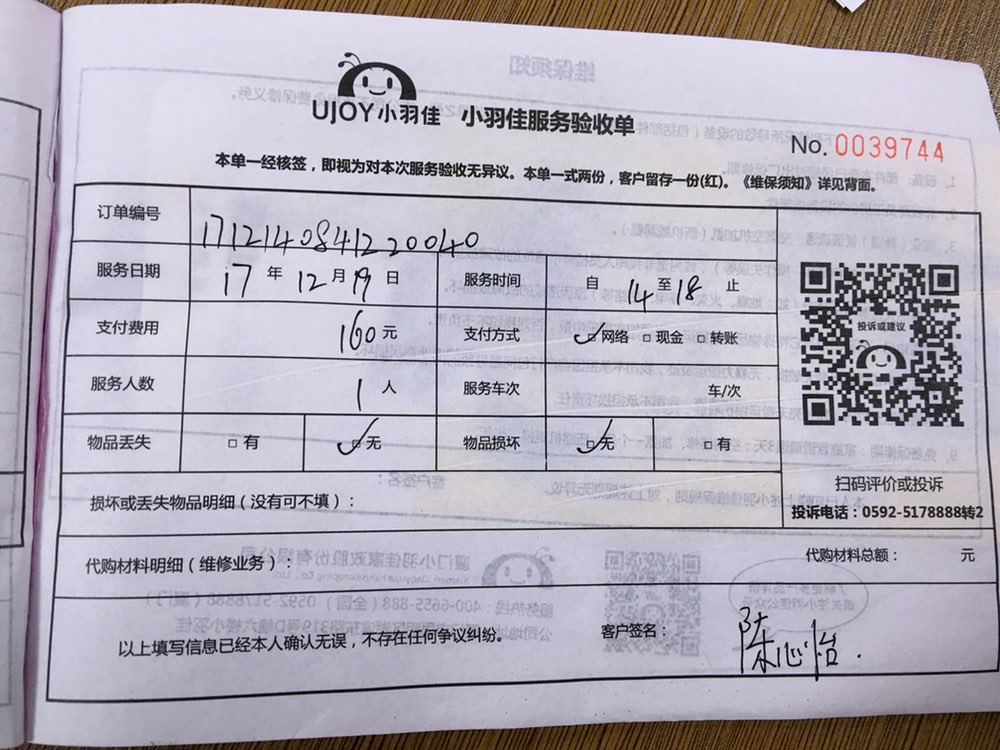 UJOY小羽佳 小羽佳服务验收单
No. 0039744
本单一经核签，即视为对本次服务验收无异议。本单一式两份，客户留存一份(红)。《维保须知》详见背面。
订单编号 1712140841220040
服务日期 17 年 12 月 19 日 服务时间 自 14 至 18 止
支付费用 160 元 支付方式 ☑网络 □现金 □转账
服务人数 1 人 服务车次 车/次
物品丢失 □有 ☑无 物品损坏 ☑无 □有
投诉或建议
扫码评价或投诉
投诉电话：0592-5178888转2
损坏或丢失物品明细（没有可不填）：
代购材料明细（维修业务）： 代购材料总额： 元
以上填写信息已经本人确认无误，不存在任何争议纠纷。 客户签名： 陈心怡.